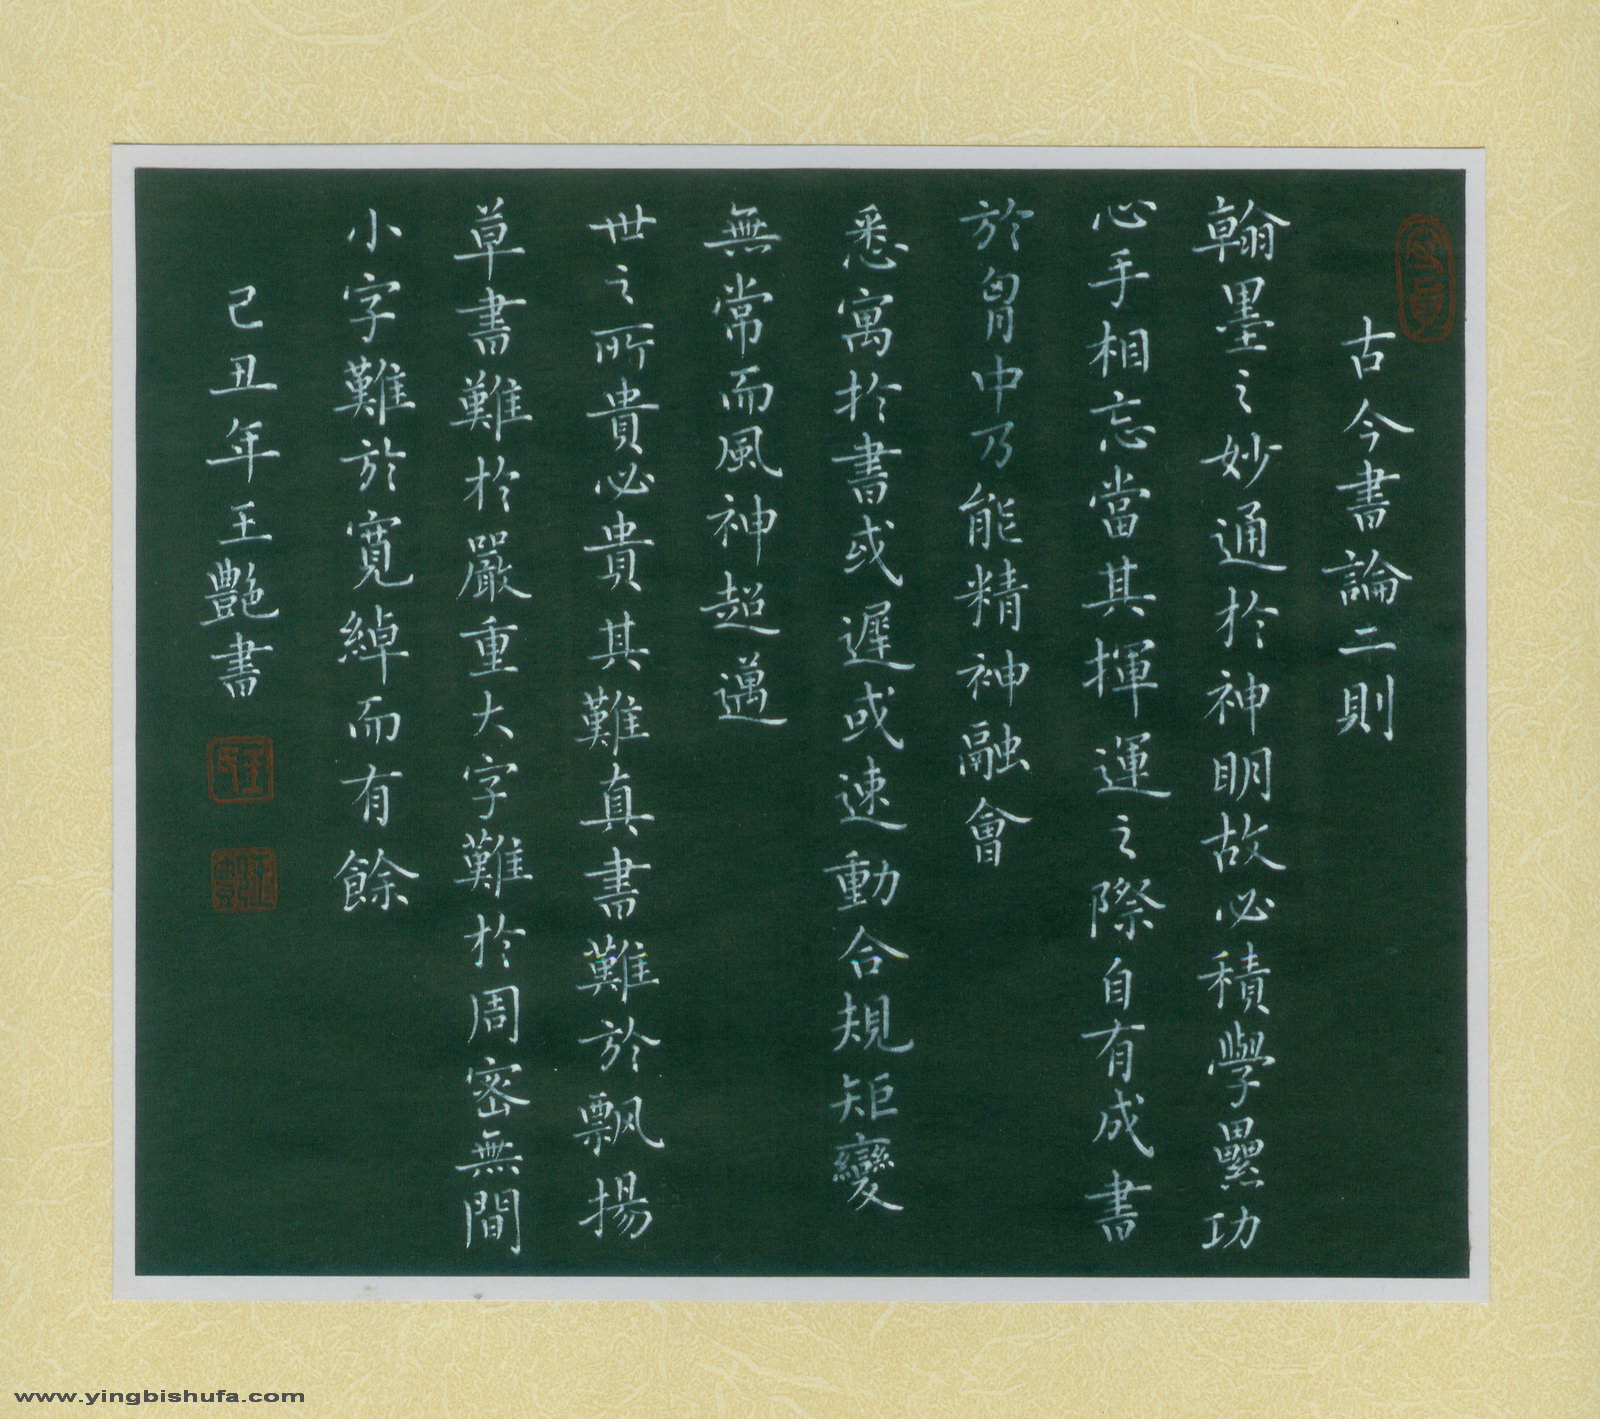 古今書論二則
翰墨之妙通於神明故必積學纍功
心手相忘當其揮運之際自有成書
於胷中乃能精神融會
悉寓於書或遲或速動合規矩變
無常而風神超邁
世之所貴必貴其難真書難於飄揚
草書難於嚴重大字難於周密無間
小字難於寬綽而有餘
己丑年王艷書
www.yingbishufa.com